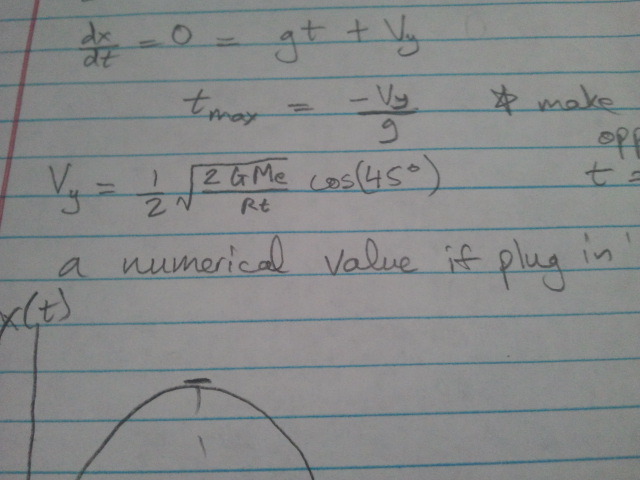 dx/dt = 0 = gt + Vy
tmax = -Vy/g * make
opp
Vy = 1/2 √(2GMe/Rt) cos(45°) t =
a numerical value if plug in
x(t)